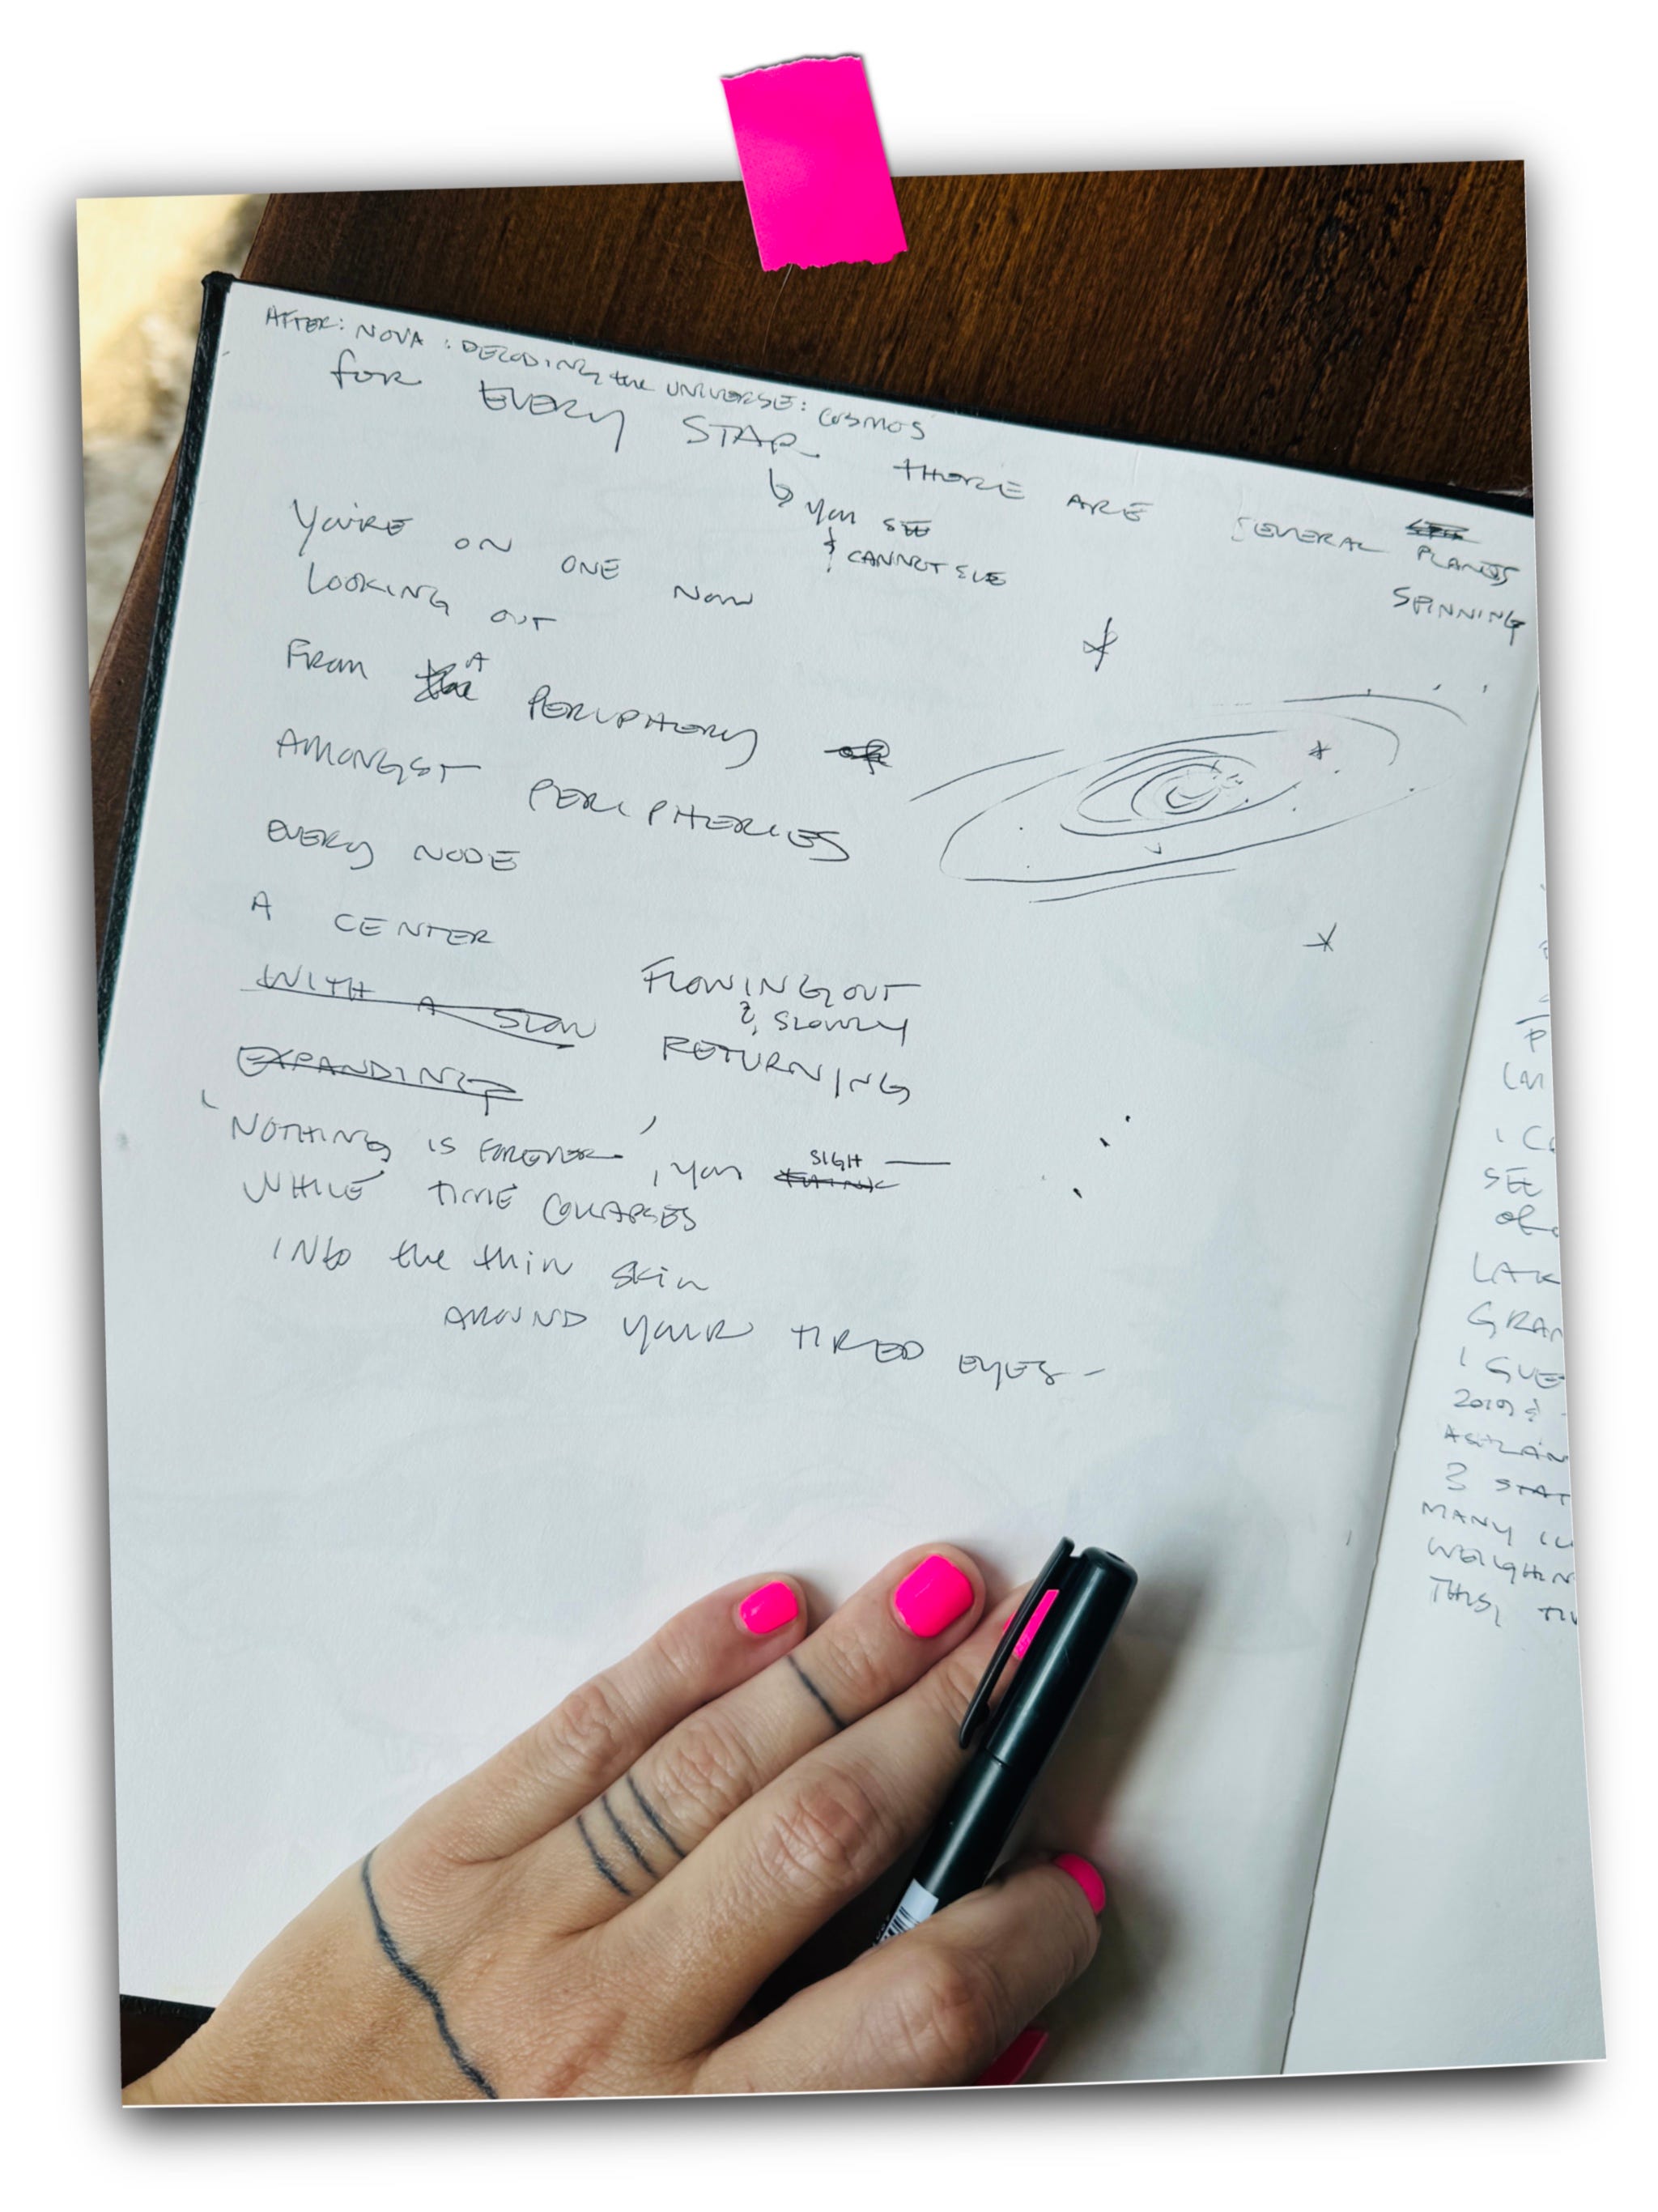 AFTER: NOVA: DECODING the UNIVERSE: COSMOS
for EVERY STAR THERE ARE SEVERAL PLANETS
↳ you SEE
& CANNOT SEE
SPINNING
YOU'RE ON ONE NOW
LOOKING OUT
From the A PERIPHERY of
AMONGST PERIPHERIES
EVERY NODE
A CENTER
WITH A SLOW
EXPANDING
FLOWING OUT
& SLOWLY
RETURNING
'NOTHING IS FOREVER', you think SIGH —
WHILE TIME COLLAPSES
INto the thin skin
AROUND YOUR TIRED EYES -
P
1 C
SEE
of
LAK
GRAN
I GUE
2019 &
3 STAT
MANY
WEIGHIN
THIS,